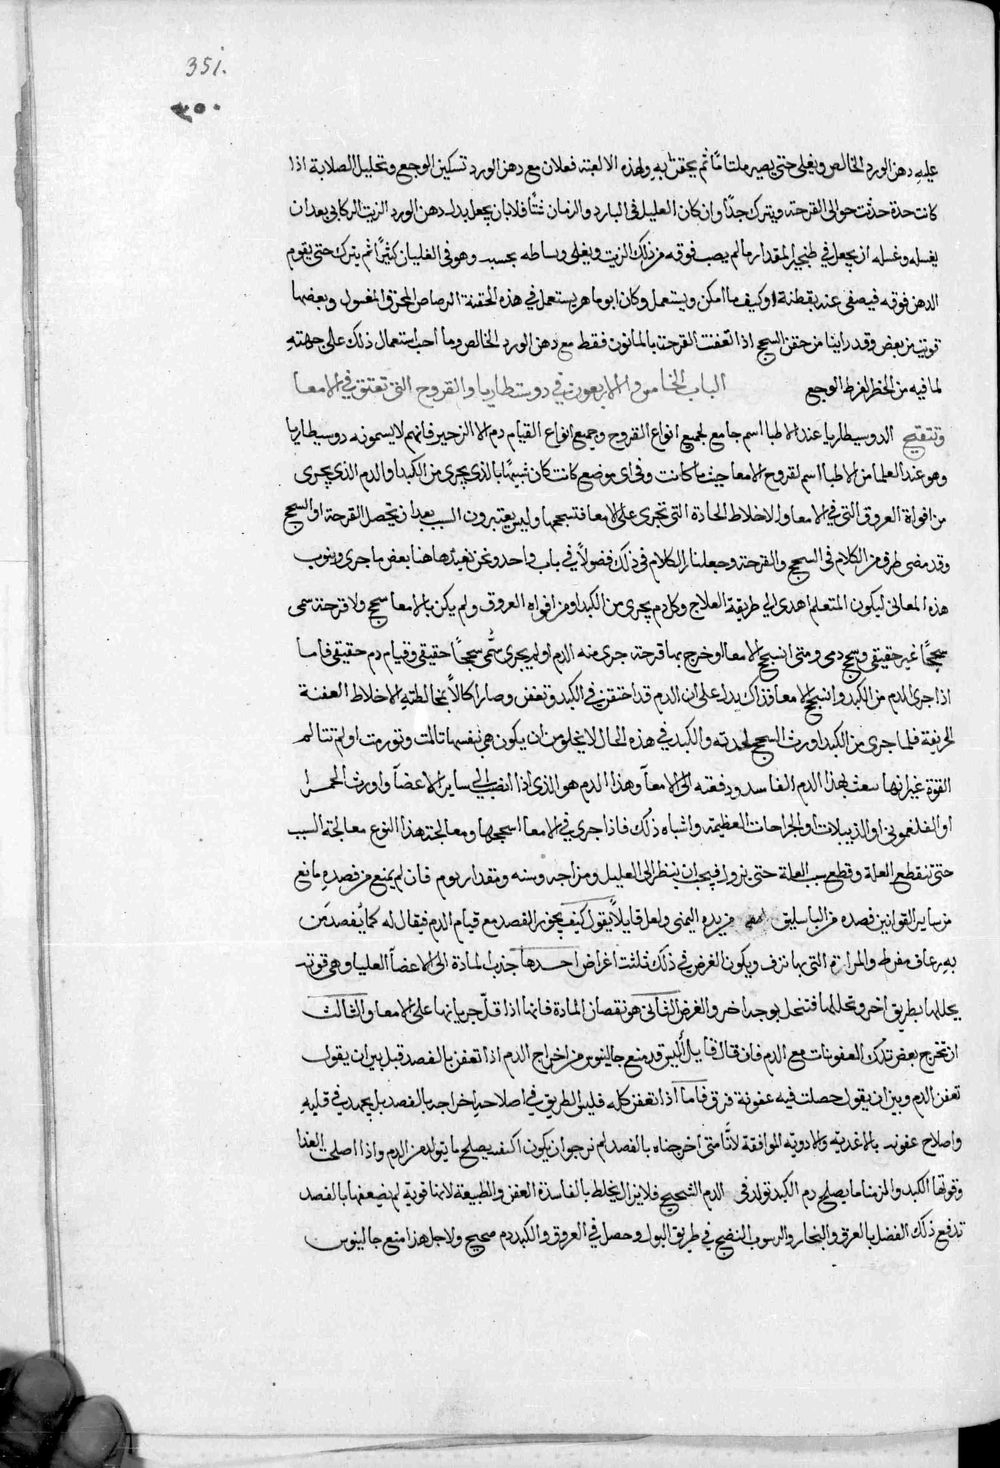 351.
٣٥٠
عليه دهن الورد الخالص ويغلى حتى يصير ملتاما ثم يحقن به ولهذه الالعبة فعلان مع دهن الورد تسكين الوجع وتحليل الصلابة اذا
كانت حدة حدثت حوالى القرحة ويترك جدا وان كان العليل فى البارد والزمان شتا فلا بان يجعل بدل دهن الورد الزيت الركابى بعد ان
يغسله وغسله ان يجعل في طنجير المقدار ما لم يصب فوقه من ذلك الزيت ويغلى وهو فى الغليان كثيرا ثم يترك حتى يقوم
الدهن فوقه فيصفى عنه بقطنة او كيف ما امكن ويستعمل وكان ابو ماهر يستعمل في هذه الحقنة الرصاص المحرق المغسول وبعضها
قريب من بعض وقد راينا من حقن السحج اذا تعفنت القرحة بالمانون فقط مع دهن الورد الخالص وما احب استعمال ذلك على جهته
لما فيه من الخطر لفرط الوجع الباب الخامس والاربعون في دوسنطاريا والقروح التى تعتق فى الامعا
وتتقيح الدوسيطاريا عند الاطبا اسم جامع لجميع انواع القروح وجميع انواع القيام دم الا الزحير فانهم لا يسمونه دوسيطاريا
وهو عند العلما من الاطبا اسم لقروح الامعا حيث ما كانت وفى اى موضع كانت كان شبيها بالذى يجرى من الكبد او الدم الذى يجرى
من افواه العروق التى فى الامعا والاخلاط الحادة التى تجرى على الامعا فتسحجها وليس يعتبرون السبب بعد ان تحصل القرحة او السحج
وقد مضى طرف من الكلام فى السحج والقرحة وجعلنا الكلام فى ذلك فصولا في باب واحد ونحن نعيد هاهنا بعض ما جرى وينوب
هذه المعانى ليكون المتعلم اهدى الى طريقة العلاج وكل دم يجرى من الكبد او من افواه العروق ولم يكن بالامعا سحج ولا قرحة سمى
سحجا غير حقيقى وسحج دمى ومتى انسحج الامعا او خرج بها قرحة جرى منه الدم او لم يجرى سمى سحجا حقيقى وقيام دم حقيقى فاما
اذا جرى الدم من الكبد وانسحج الامعا فذاك يدل على ان الدم قد احتقن فى الكبد وتعفن وصار اكالا بمخالطته الاخلاط العفنة
الحريفة فلما جرى من الكبد اورث السحج لحدته والكبد في هذه الحال لا يخلو من ان يكون هى نفسها تالمت وتورمت او لم تتالم
القوة غير انها بعثت بهذا الدم الفاسد ودفعته الى الامعآ وهذا الدم هو الذى اذا انصب الى ساير الاعضآ واورث الحمرا
او الفلغمونى او الدبيلات او الجراحات العظيمة واشباه ذلك فاذا جرى في الامعا اسحجها ومعالجة هذا النوع معالجة السبب
حتى تنقطع العلة وقطع سبب العلة حتى يزول فيجب ان ينظر الى العليل ومزاجه وسنه ومقدار يوم فان لم يمنع من فصده مانع
من ساير القوانين فصده من الباسليق من يده اليمنى ولعل قايلا يقول كيف يجوز الفصد مع قيام الدم فيقال له كما يفصد من
به رعاف مفرط والمراة التى بها نزف ويكون الغرض في ذلك ثلثة اغراض احدها جذب المادة الى الاعضآ العليا وهى قوته
يحللها بطريق اخر وتحللها فتنحل بوجه اخر والغرض الثانى هو نقصان المادة فانها اذا قل جريانها على الامعا والثالث
ان تخرج بعض تلك العفونات مع الدم فان قال قايل اليس قد منع جالينوس من اخراج الدم اذا تعفن بالفصد قيل بين ان يقول
تعفن الدم وبين ان يقول حصلت فيه عفونة فرق فاما اذا تعفن كله فليس الطريق فى اصلاحه اخراجه بالفصد بل يجمد في قلبه
واصلاح عفونته بالاغذية والادوية الموافقة لانا متى اخرجناه بالفصد لم نرجو ان يكون اكيفه يصلح ما يتولد من الدم واذا اصلح الغذا
وقوتها الكبد والزمنا ما يصلح دم الكبد تولد فى الدم الصحيح فلا يزال يخلط بالفاسدة العفن والطبيعة لانها قوية لم يضعفها بالفصد
تدفع ذلك الفضل بالعرق والبخار والرسوب النضيج فى طريق البول وحصل في العروق والكبد دم صحيح ولاجل هذا منع جالينوس